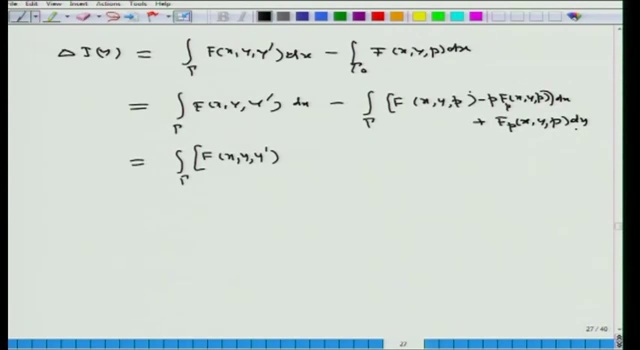 File View Insert Actions Tools Help
Δ J(y) = ∫_Γ F(x, y, y') dx − ∫_Γ₀ F(x, y, p) dx
= ∫_Γ F(x, y, y') dx − ∫_Γ [F(x, y, p) − p F_p(x, y, p)] dx
+ F_p(x, y, p) dy
= ∫_Γ [F(x, y, y')
27 / 40
27